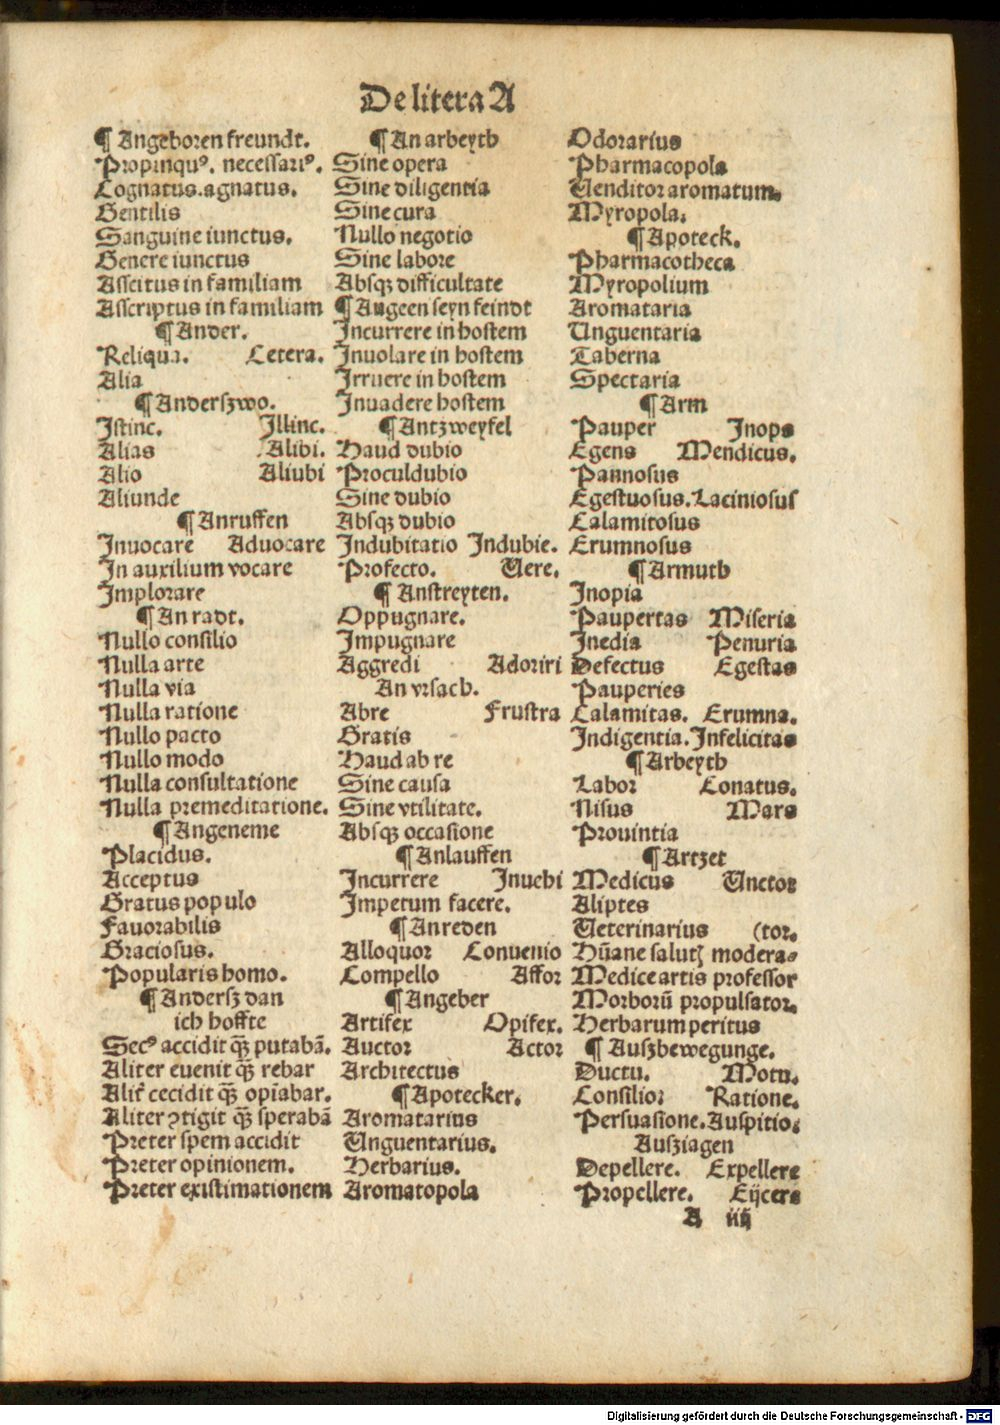 De litera A
¶ Angeboren freundt.
Propinquꝰ. necessariꝰ.
Cognatus. agnatus.
Gentilis
Sanguine iunctus.
Genere iunctus
Ascitus in familiam
Asscriptus in familiam
¶ Ander.
Reliqua. Cetera.
Alia
¶ Anderszwo.
Istinc. Illinc.
Alias Alibi.
Alio Aliubi
Aliunde
¶ Anruffen
Inuocare Aduocare
In auxilium vocare
Implorare
¶ An radt.
Nullo consilio
Nulla arte
Nulla via
Nulla ratione
Nullo pacto
Nullo modo
Nulla consultatione
Nulla premeditatione.
¶ Angeneme
Placidus.
Acceptus
Gratus populo
Fauorabilis
Graciosus.
Popularis homo.
¶ Andersz dan
ich hoffte
Secꝰ accidit qꝫ putabā.
Aliter euenit qꝫ rebar
Alit̄ cecidit qꝫ opīabar.
Aliter ꝯtigit qꝫ sperabā
Preter spem accidit
Preter opinionem.
Preter existimationem
¶ An arbeyth
Sine opera
Sine diligentia
Sine cura
Nullo negotio
Sine labore
Absqꝫ difficultate
¶ Angeen seyn feindt
Incurrere in hostem
Inuolare in hostem
Irruere in hostem
Inuadere hostem
¶ Antzweyfel
Haud dubio
Proculdubio
Sine dubio
Absqꝫ dubio
Indubitatio Indubie.
Profecto. Uere.
¶ Anstreyten.
Oppugnare.
Impugnare
Aggredi Adoriri
An vrsach.
Abre Frustra
Gratis
Haud ab re
Sine causa
Sine vtilitate.
Absqꝫ occasione
¶ Anlauffen
Incurrere Inuehi
Impetum facere.
¶ Anreden
Alloquor Conuenio
Compello Affor
¶ Angeber
Artifex Opifex.
Auctor Actor
Architectus
¶ Apotecker.
Aromatarius
Unguentarius.
Herbarius.
Aromatopola
Odorarius
Pharmacopola
Uenditor aromatum.
Myropola.
¶ Apoteck.
Pharmacotheca
Myropolium
Aromataria
Unguentaria
Taberna
Spectaria
¶ Arm
Pauper Inops
Egens Mendicus.
Pannosus
Egestuosus. Laciniosus
Calamitosus
Erumnosus
¶ Armuth
Inopia
Paupertas Miseria
Inedia Penuria
Defectus Egestas
Pauperies
Calamitas. Erumna.
Indigentia. Infelicitas
¶ Arbeyth
Labor Conatus.
Nisus Mars
Prouintia
¶ Artzet
Medicus Unctor
Aliptes
Ueterinarius (tor.
Hūane salutꝫ modera-
Medice artis professor
Morborū propulsator.
Herbarum peritus
¶ Auszbewegunge.
Ductu. Motu.
Consilio: Ratione.
Persuasione. Auspitio.
Ausziagen
Depellere. Expellere
Propellere. Eijcere
A iij
Digitalisierung gefördert durch die Deutsche Forschungsgemeinschaft - DFG